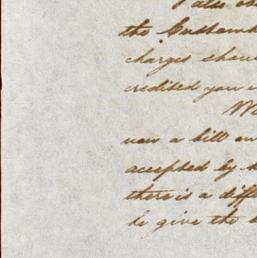 I also
the
charges shou
credited you
now a bill on
accepted by
there is a diff
he give the